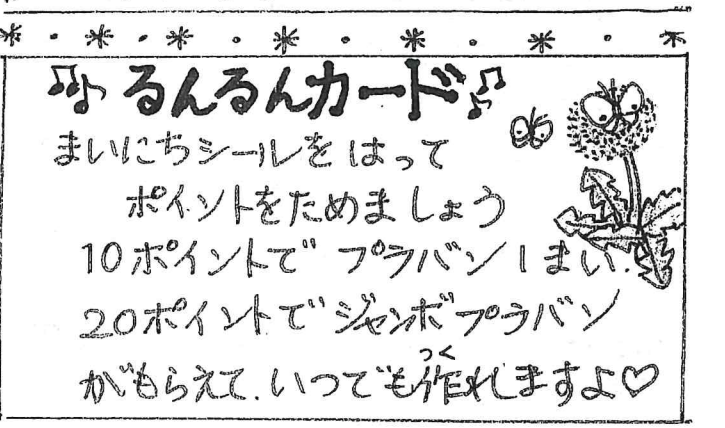 ♪♪るんるんカード♪♪
まいにちシールをはって
ポイントをためましょう
10ポイントでプラバン1まい.
20ポイントでジャンボプラバン
がもらえて.いつでも作れますよ♡
つく